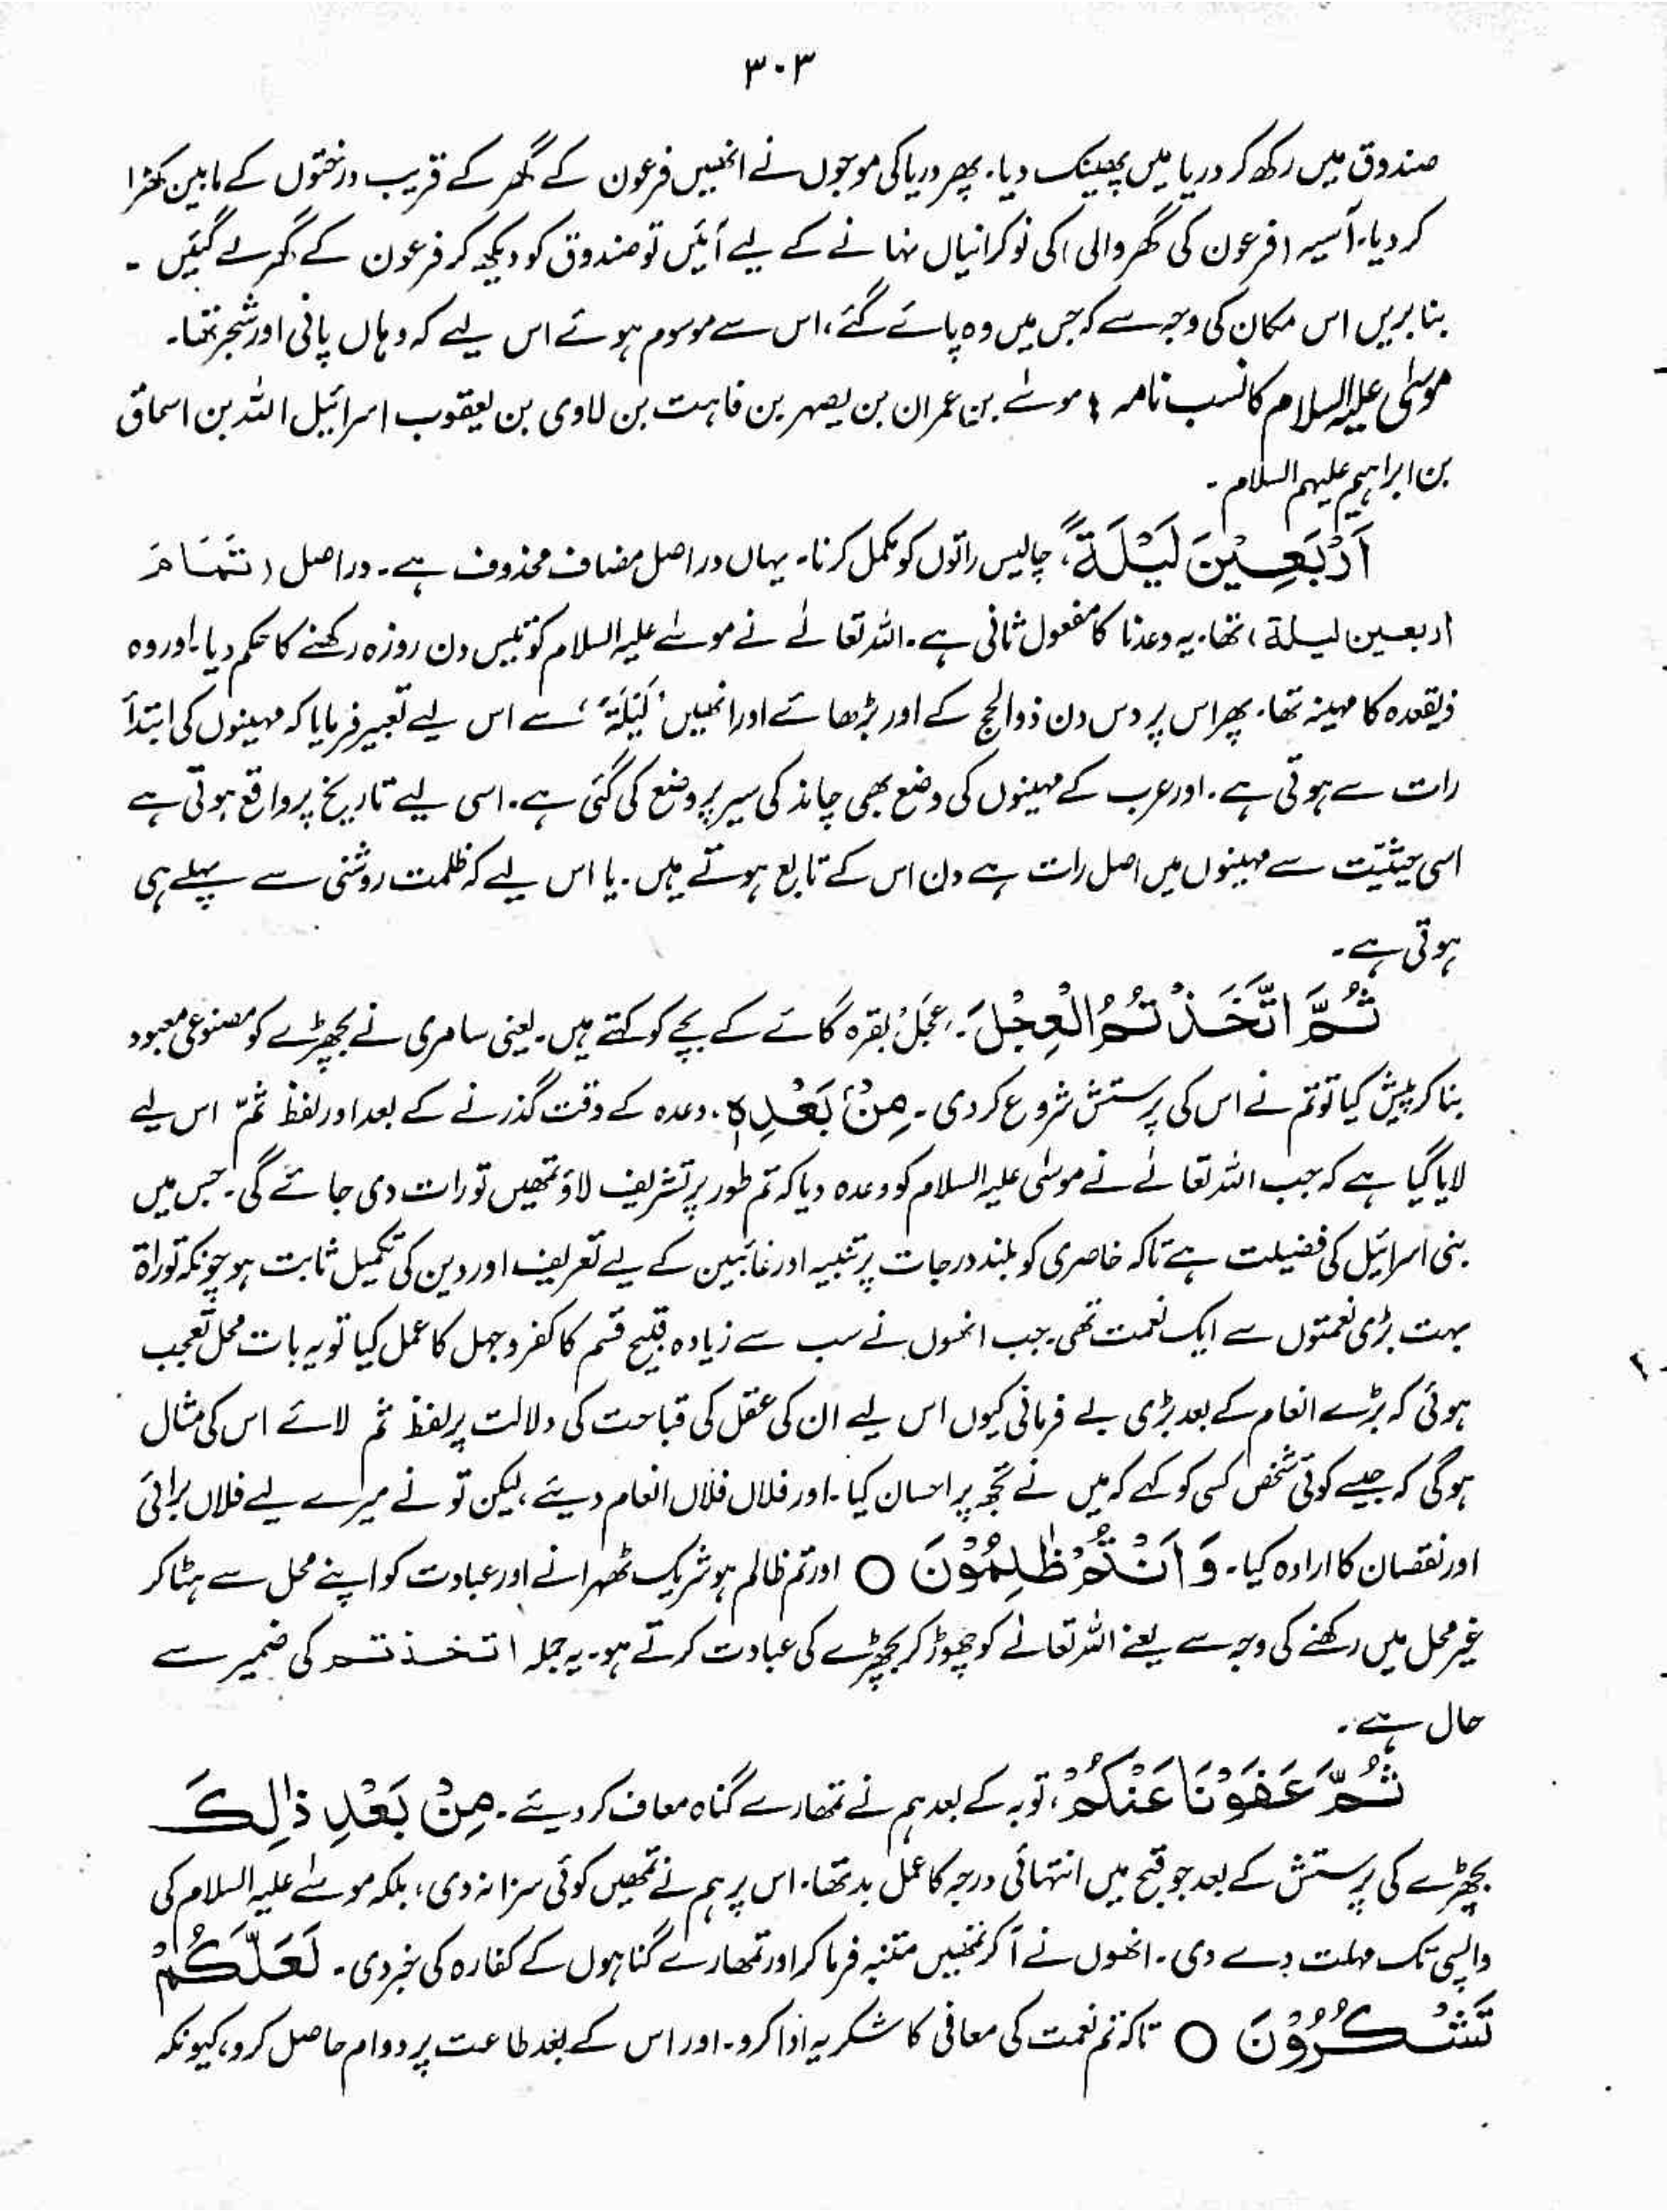 ۳۰۳
صندوق میں رکھ کر دریا میں پھینک دیا۔ پھر دریا کی موجوں نے انھیں فرعون کے گھر کے قریب درختوں کے مابین کھڑا
کر دیا۔ آسیہ (فرعون کی گھر والی) کی نوکرانیاں نہانے کے لیے آئیں تو صندوق کو دیکھ کر فرعون کے گھر لے گئیں۔
بنا بریں اس مکان کی وجہ سے کہ جس میں وہ پائے گئے، اس سے موسوم ہوئے اس لیے کہ وہاں پانی اور شجر تھا۔
موسیٰ علیہ السلام کا نسب نامہ : موسٰے بن عمران بن یصہر بن فاہت بن لاوی بن یعقوب اسرائیل اللہ بن اسحاق
بن ابراہیم علیہم السلام۔
اَرْبَعِيْنَ لَيْلَةً، چالیس راتوں کو مکمل کرنا۔ یہاں دراصل مضاف محذوف ہے۔ دراصل (تَمَامَ
اربعین لیلۃ) تھا۔ یہ وعدنا کا مفعول ثانی ہے۔ اللہ تعالٰے نے موسٰے علیہ السلام کو تیس دن روزہ رکھنے کا حکم دیا۔ اور وہ
ذیقعدہ کا مہینہ تھا۔ پھر اس پر دس دن ذوالحج کے اور بڑھائے اور انھیں 'لَیْلَۃً' سے اس لیے تعبیر فرمایا کہ مہینوں کی ابتدأ
رات سے ہوتی ہے۔ اور عرب کے مہینوں کی وضع بھی چاند کی سیر پر وضع کی گئی ہے۔ اسی لیے تاریخ پر واقع ہوتی ہے
اسی حیثیت سے مہینوں میں اصل رات ہے دن اس کے تابع ہوتے ہیں۔ یا اس لیے کہ ظلمت روشنی سے پہلے ہی
ہوتی ہے۔
ثُمَّ اتَّخَذْتُمُ الْعِجْلَ۔ عِجَلْ بقرہ گائے کے بچے کو کہتے ہیں۔ یعنی سامری نے بچھڑے کو مصنوعی معبود
بنا کر پیش کیا تو تم نے اس کی پرستش شروع کر دی۔ مِنْۢ بَعْدِهٖ، وعدہ کے وقت گذرنے کے بعد اور لفظ ثُمّ اس لیے
لایا گیا ہے کہ جب اللہ تعالٰے نے موسیٰ علیہ السلام کو وعدہ دیا کہ تم طور پر تشریف لاؤ تمھیں تورات دی جائے گی۔ جس میں
بنی اسرائیل کی فضیلت ہے تاکہ خاصری کو بلند درجات پر تنبیہ اور غائبین کے لیے تعریف اور دین کی تکمیل ثابت ہو چونکہ توراۃ
بہت بڑی نعمتوں سے ایک نعمت تھی۔ جب انھوں نے سب سے زیادہ قبیح قسم کا کفر و جہل کا عمل کیا تو یہ بات محل تعجب
ہوئی کہ بڑے انعام کے بعد بڑی بے فرمانی کیوں اس لیے ان کی عقل کی قباحت کی دلالت پر لفظ ثم لائے اس کی مثال
ہوگی کہ جیسے کوئی شخص کسی کو کہے کہ میں نے تجھ پر احسان کیا۔ اور فلاں فلاں انعام دیئے، لیکن تو نے میرے لیے فلاں برائی
اور نقصان کا ارادہ کیا۔ وَ اَنْتُمْ ظٰلِمُوْنَ ○ اور تم ظالم ہو شریک ٹھہرانے اور عبادت کو اپنے محل سے ہٹا کر
غیر محل میں رکھنے کی وجہ سے یعنے اللہ تعالٰے کو چھوڑ کر بچھڑے کی عبادت کرتے ہو۔ یہ جملہ اتخذتم کی ضمیر سے
حال ہے۔
ثُمَّ عَفَوْنَا عَنْكُمْ، توبہ کے بعد ہم نے تمھارے گناہ معاف کر دیئے۔ مِنْۢ بَعْدِ ذٰلِكَ
بچھڑے کی پرستش کے بعد جو قبیح میں انتہائی درجہ کا عمل بد تھا۔ اس پر ہم نے تمھیں کوئی سزا نہ دی، بلکہ موسٰے علیہ السلام کی
واپسی تک مہلت دے دی۔ انھوں نے آ کر تمھیں متنبہ فرما کر اور تمھارے گناہوں کے کفارہ کی خبر دی۔ لَعَلَّكُمْ
تَشْكُرُوْنَ ○ تاکہ تم نعمت کی معافی کا شکریہ ادا کرو۔ اور اس کے بعد طاعت پر دوام حاصل کرو، کیونکہ